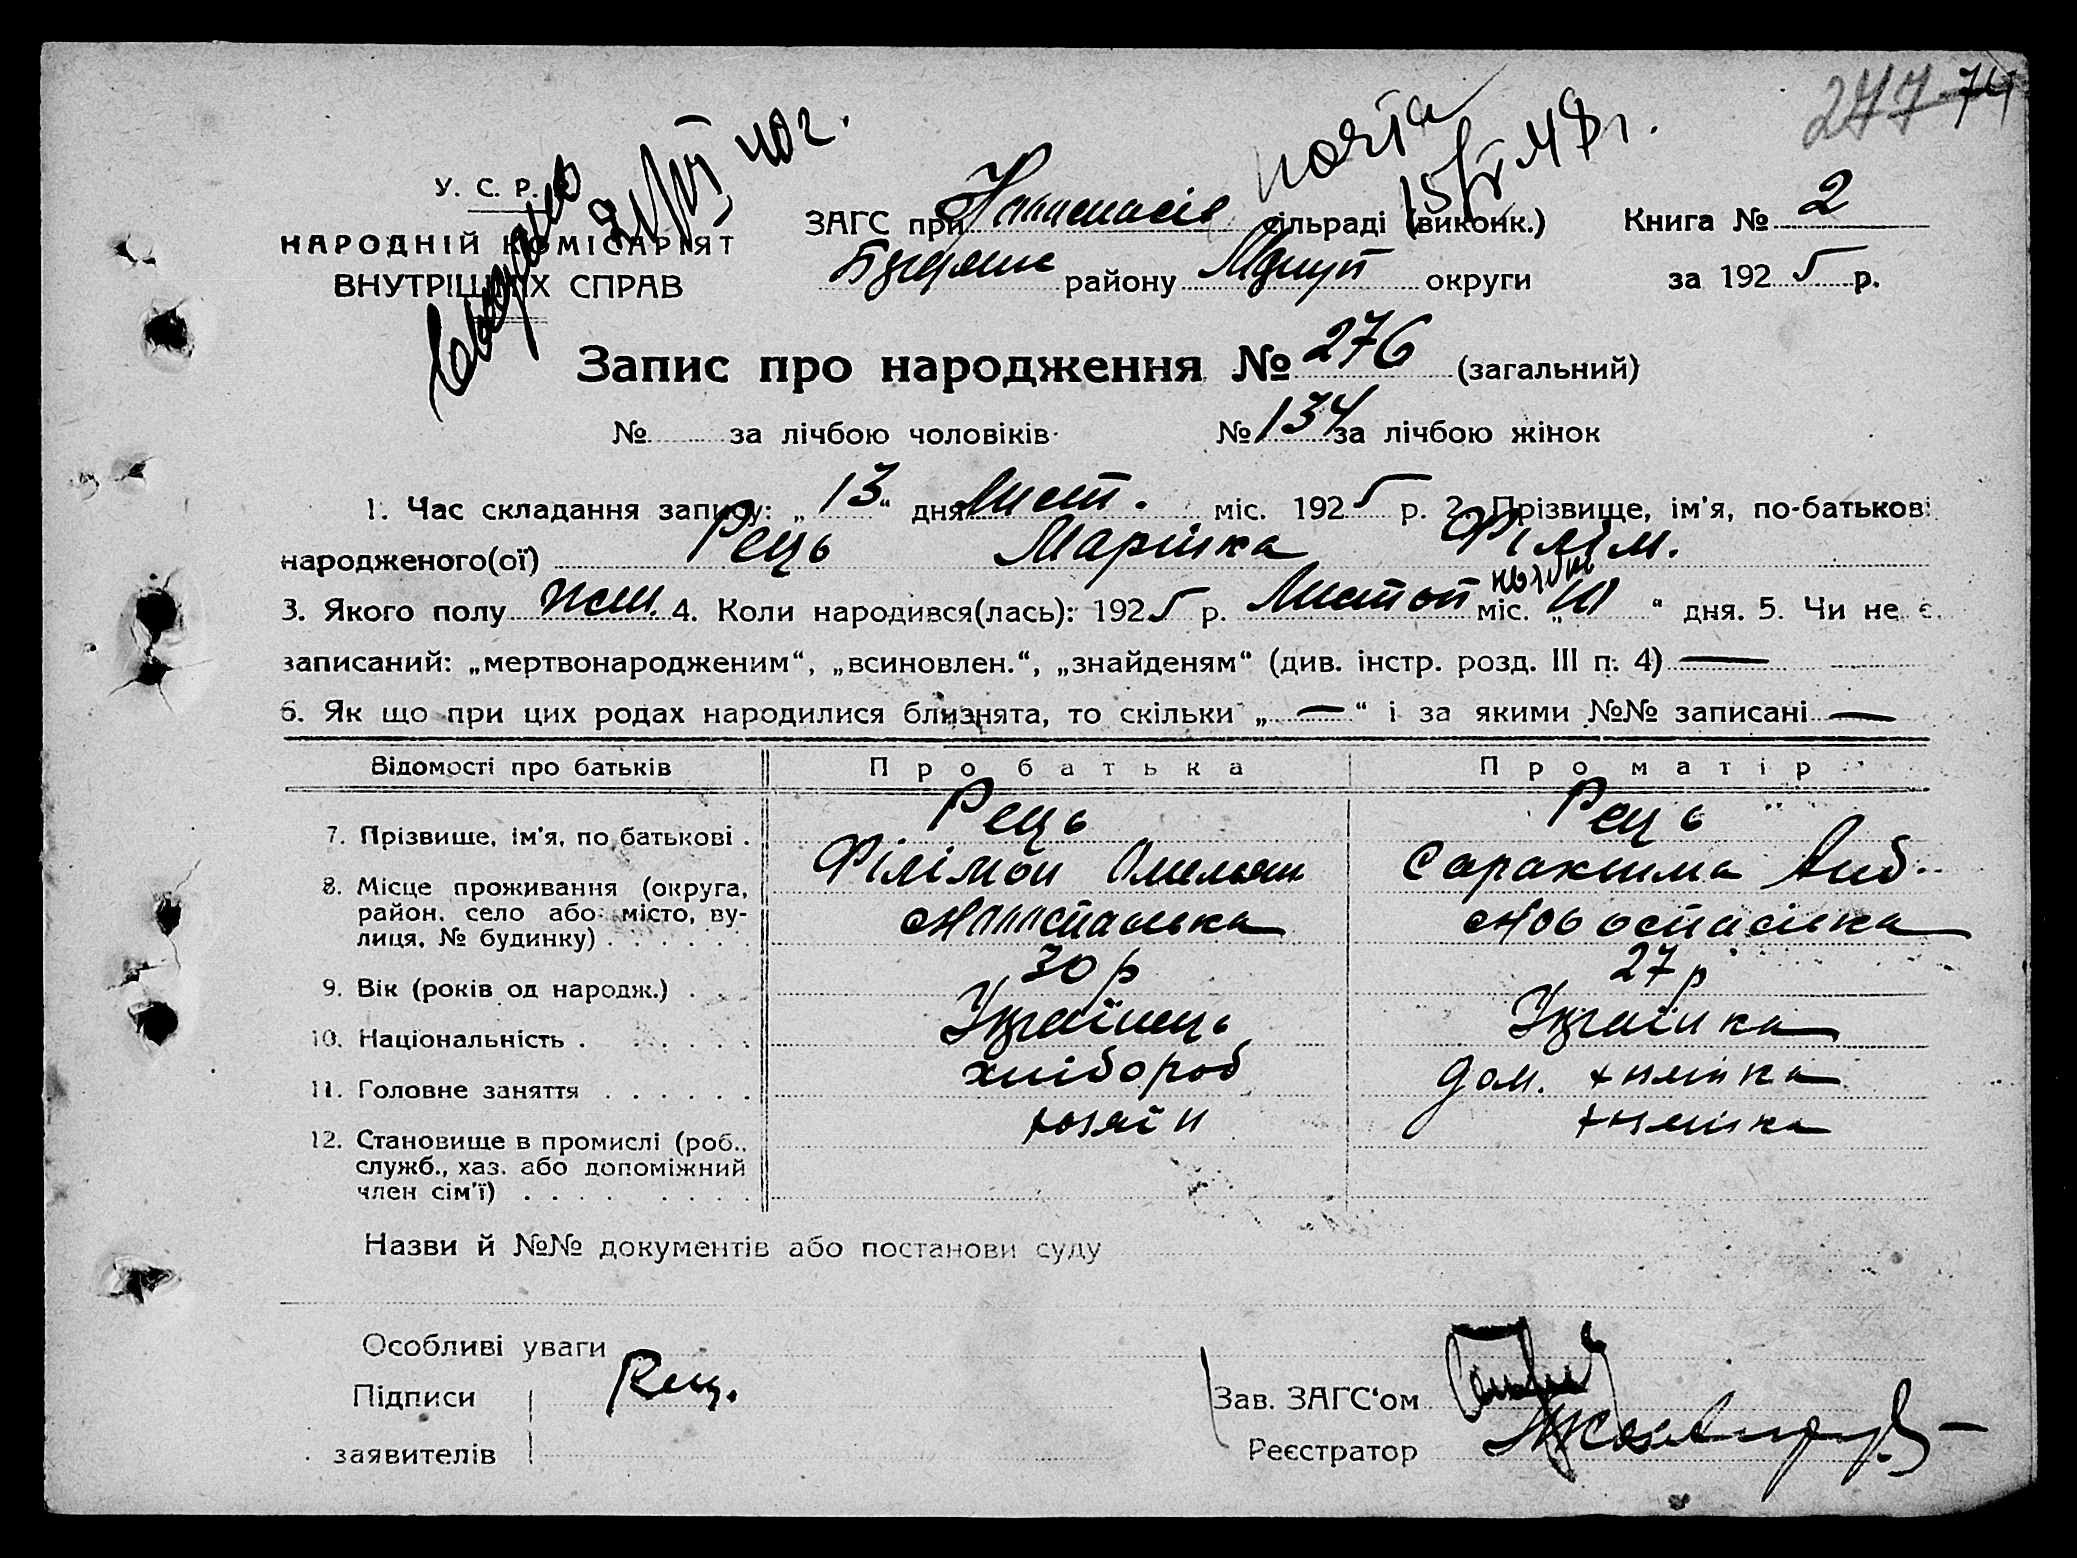 247 74
пошта
15/V 48 г.
У. С. Р. Р.
НАРОДНІЙ КОМІСАРІЯТ
ВНУТРІШНІХ СПРАВ
ЗАГС при сільраді (виконк.) Книга № 2
району Маріуп округи за 1925 р.
Запис про народження № 276 (загальний)
№ за лічбою чоловіків № 134 за лічбою жінок
1. Час складання запису: „13“ дня Лист. міс. 1925 р. 2. Прізвище, ім'я, по-батькові
народженого(ої) Рець Марійка Філім.
3. Якого полу жін. 4. Коли народився(лась): 1925 р. Листоп міс. „10“ дня. 5. Чи не є
записаний: „мертвонародженим“, „всиновлен.“, „знайденям“ (див. інстр. розд. III п. 4) —
6. Як що при цих родах народилися близнята, то скільки „—“ і за якими №№ записані —
Відомості про батьків Про батька Про матір
7. Прізвище, ім'я, по батькові . Рець Рець
Філімон Омельян
8. Місце проживання (округа, район, село або місто, вулиця, № будинку) . . . . . . Новоспасівка Новоспасівка
9. Вік (років од народж.) . . . 30 р 27 р
10. Національність . . . . . . Українець Українка
11. Головне заняття . . . . . . хлібороб дом. хазяйка
12. Становище в промислі (роб., служб., хаз. або допоміжний член сім'ї) . . . . . . . хазяїн хазяйка
Назви й №№ документів або постанови суду
Особливі уваги
Підписи Рец.
заявителів
Зав. ЗАГС'ом
Реєстратор